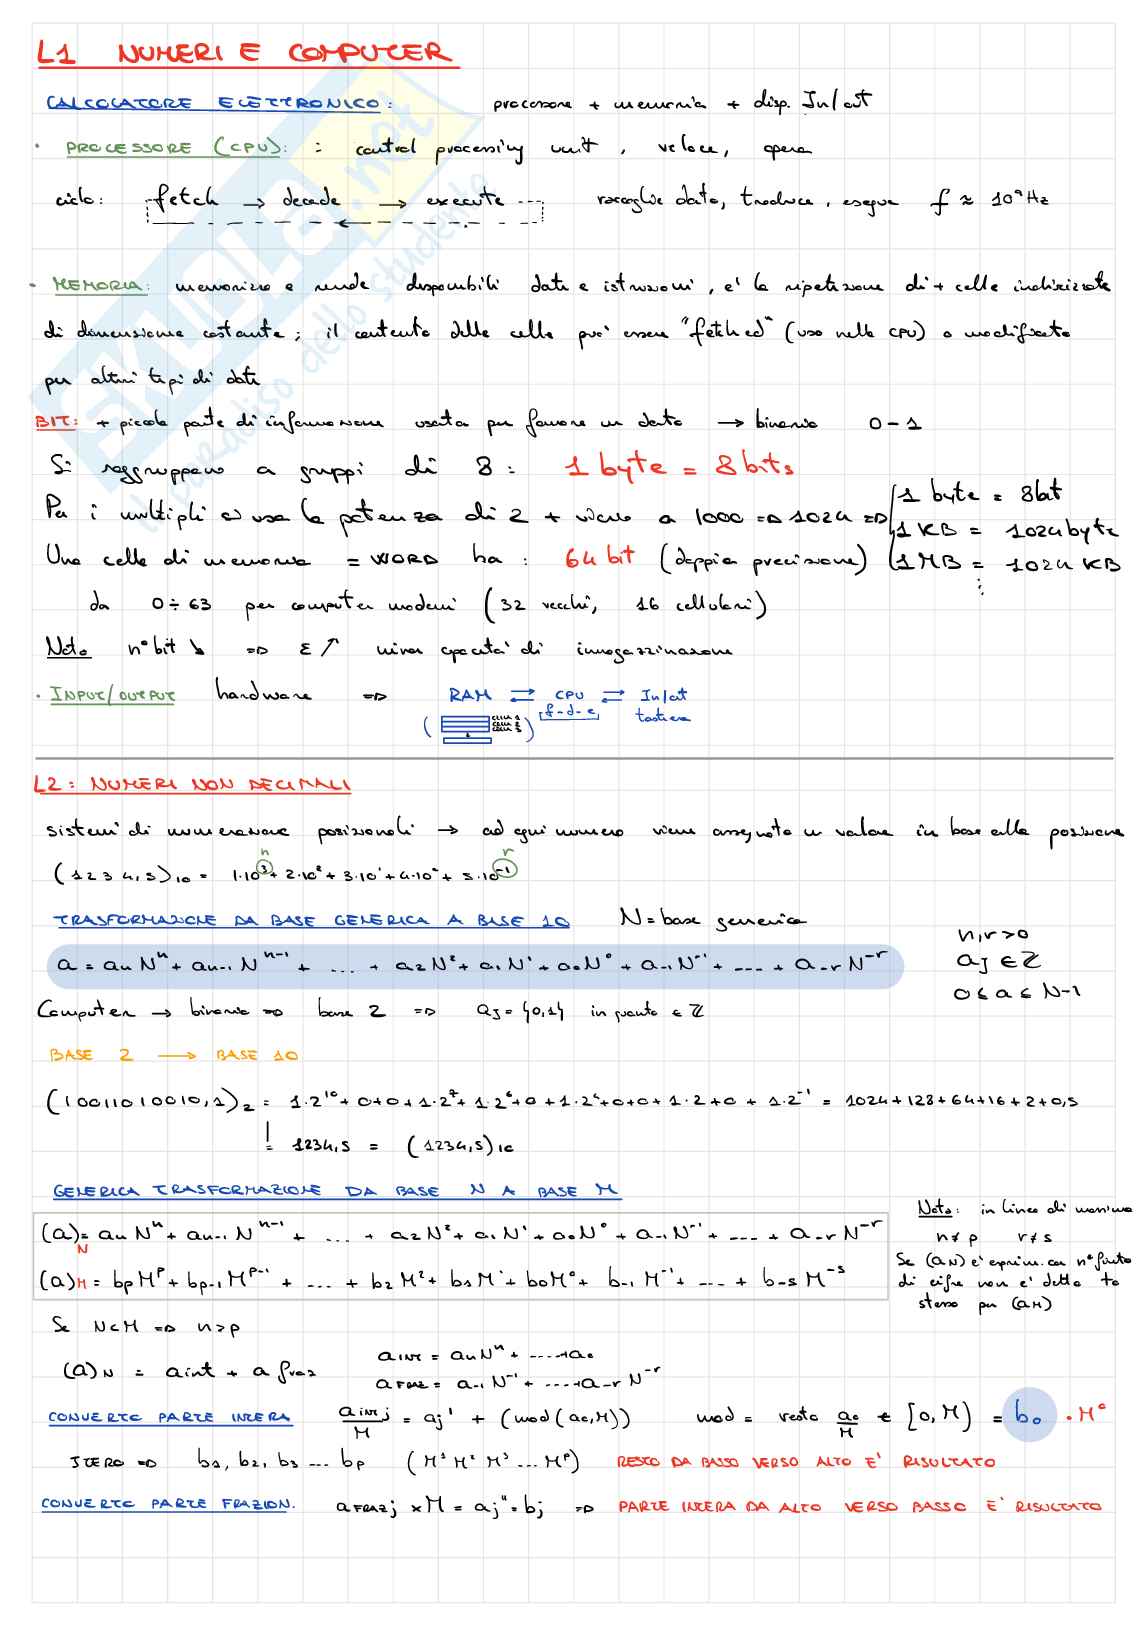 L1 NUMERI E COMPUTER
CALCOLATORE ELETTRONICO: processore + memoria + disp. In/out
• PROCESSORE (CPU): : control processing unit, veloce, opera
ciclo: fetch → decode → execute raccoglie dato, traduce, esegue f ≈ 10⁹ Hz
• MEMORIA: memorizza e rende disponibili dati e istruzioni, e' la ripetizione di + celle indirizzate
di dimensione costante; il contenuto delle celle puo' essere "fetched" (uso nelle CPU) o modificato
per altri tipi di dati
BIT: + piccola parte di informazione usata per fornire un dato → binario 0-1
Si raggruppano a gruppi di 8: 1 byte = 8 bits
Per i multipli si usa la potenza di 2 + vicino a 1000 => 1024 => 1 byte = 8bit
1 KB = 1024 byte
Una cella di memoria = WORD ha: 64 bit (doppia precisione) 1 MB = 1024 KB
⋮
da 0÷63 per computer moderni (32 vecchi, 16 cellulari)
Nota n°bit ↘ => ε ↗ minor capacita' di immagazzinazione
• INPUT/OUTPUT hardware => RAM ⇄ CPU ⇄ In/out
f-d-e tastiera
L2: NUMERI NON DECIMALI
sistemi di numerazione posizionali → ad ogni numero viene assegnato un valore in base alla posizione
n r
(1234,5)₁₀ = 1·10³ + 2·10² + 3·10¹ + 4·10⁰ + 5·10⁻¹
TRASFORMAZIONE DA BASE GENERICA A BASE 10 N = base generica
n,r > 0
a = aₙNⁿ + aₙ₋₁Nⁿ⁻¹ + ... + a₂N² + a₁N¹ + a₀N⁰ + a₋₁N⁻¹ + ... + a₋ᵣN⁻ʳ aⱼ ∈ ℤ
0 ≤ a ≤ N-1
Computer → binario => base 2 => aⱼ = {0,1} in quanto ∈ ℤ
BASE 2 → BASE 10
(10011010010,1)₂ = 1·2¹⁰ + 0+0+1·2⁷ + 1·2⁶ + 0 + 1·2⁴ + 0+0+ 1·2+0 + 1·2⁻¹ = 1024+128+64+16+2+0,5
= 1234,5 = (1234,5)₁₀
GENERICA TRASFORMAZIONE DA BASE N A BASE M
Nota: in linea di massima
n ≠ p r ≠ s
(a)N = aₙNⁿ + aₙ₋₁Nⁿ⁻¹ + ... + a₂N² + a₁N¹ + a₀N⁰ + a₋₁N⁻¹ + ... + a₋ᵣN⁻ʳ
(a)M = bₚMᵖ + bₚ₋₁Mᵖ⁻¹ + ... + b₂M² + b₁M¹ + b₀M⁰ + b₋₁M⁻¹ + ... + b₋ₛM⁻ˢ
Se (aN) e' esprim. con n° finito
di cifre non e' detto lo
stesso per (aM)
Se N<M => n>p
(a)N = aint + afraz aINT = aₙNⁿ + ....+a₀
aFRAZ = a₋₁N⁻¹ + ....+a₋ᵣN⁻ʳ
CONVERTO PARTE INTERA aINTj/M = aj' + (mod(a₀,M)) mod = resto a₀/M ∈ [0,M) = b₀ · M⁰
ITERO => b₁, b₂, b₃ ... bₚ (M¹ M² M³ ... Mᵖ) RESTO DA BASSO VERSO ALTO E' RISULTATO
CONVERTO PARTE FRAZION. aFRAZj × M = aj" = bj => PARTE INTERA DA ALTO VERSO BASSO E' RISULTATO
SKUOLA.net
il paradiso dello studente